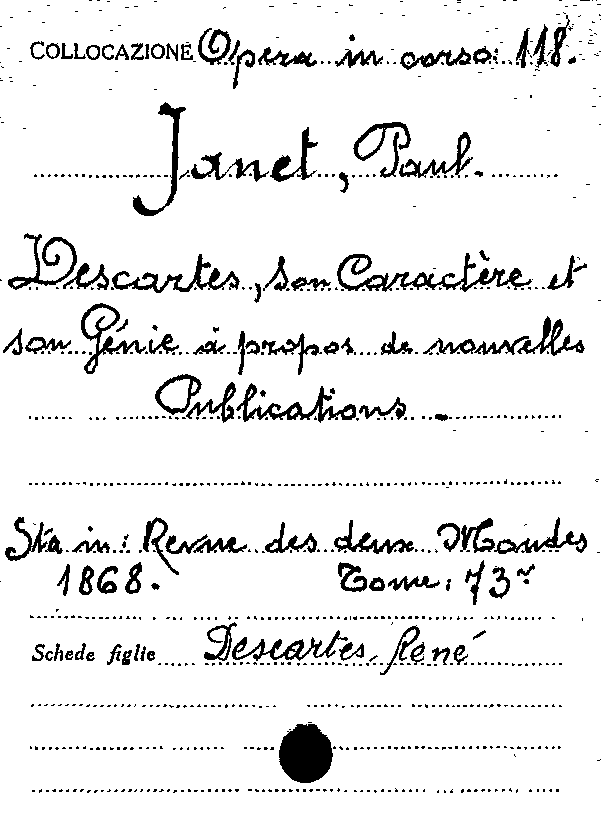 COLLOCAZIONE Opera in corso: 118.
Janet, Paul.
Descartes, son Caractère et
son Génie à propos de nouvelles
Publications.
Sta in: Revue des deux Mondes
1868. Tome: 73r
Schede figlie Descartes, René